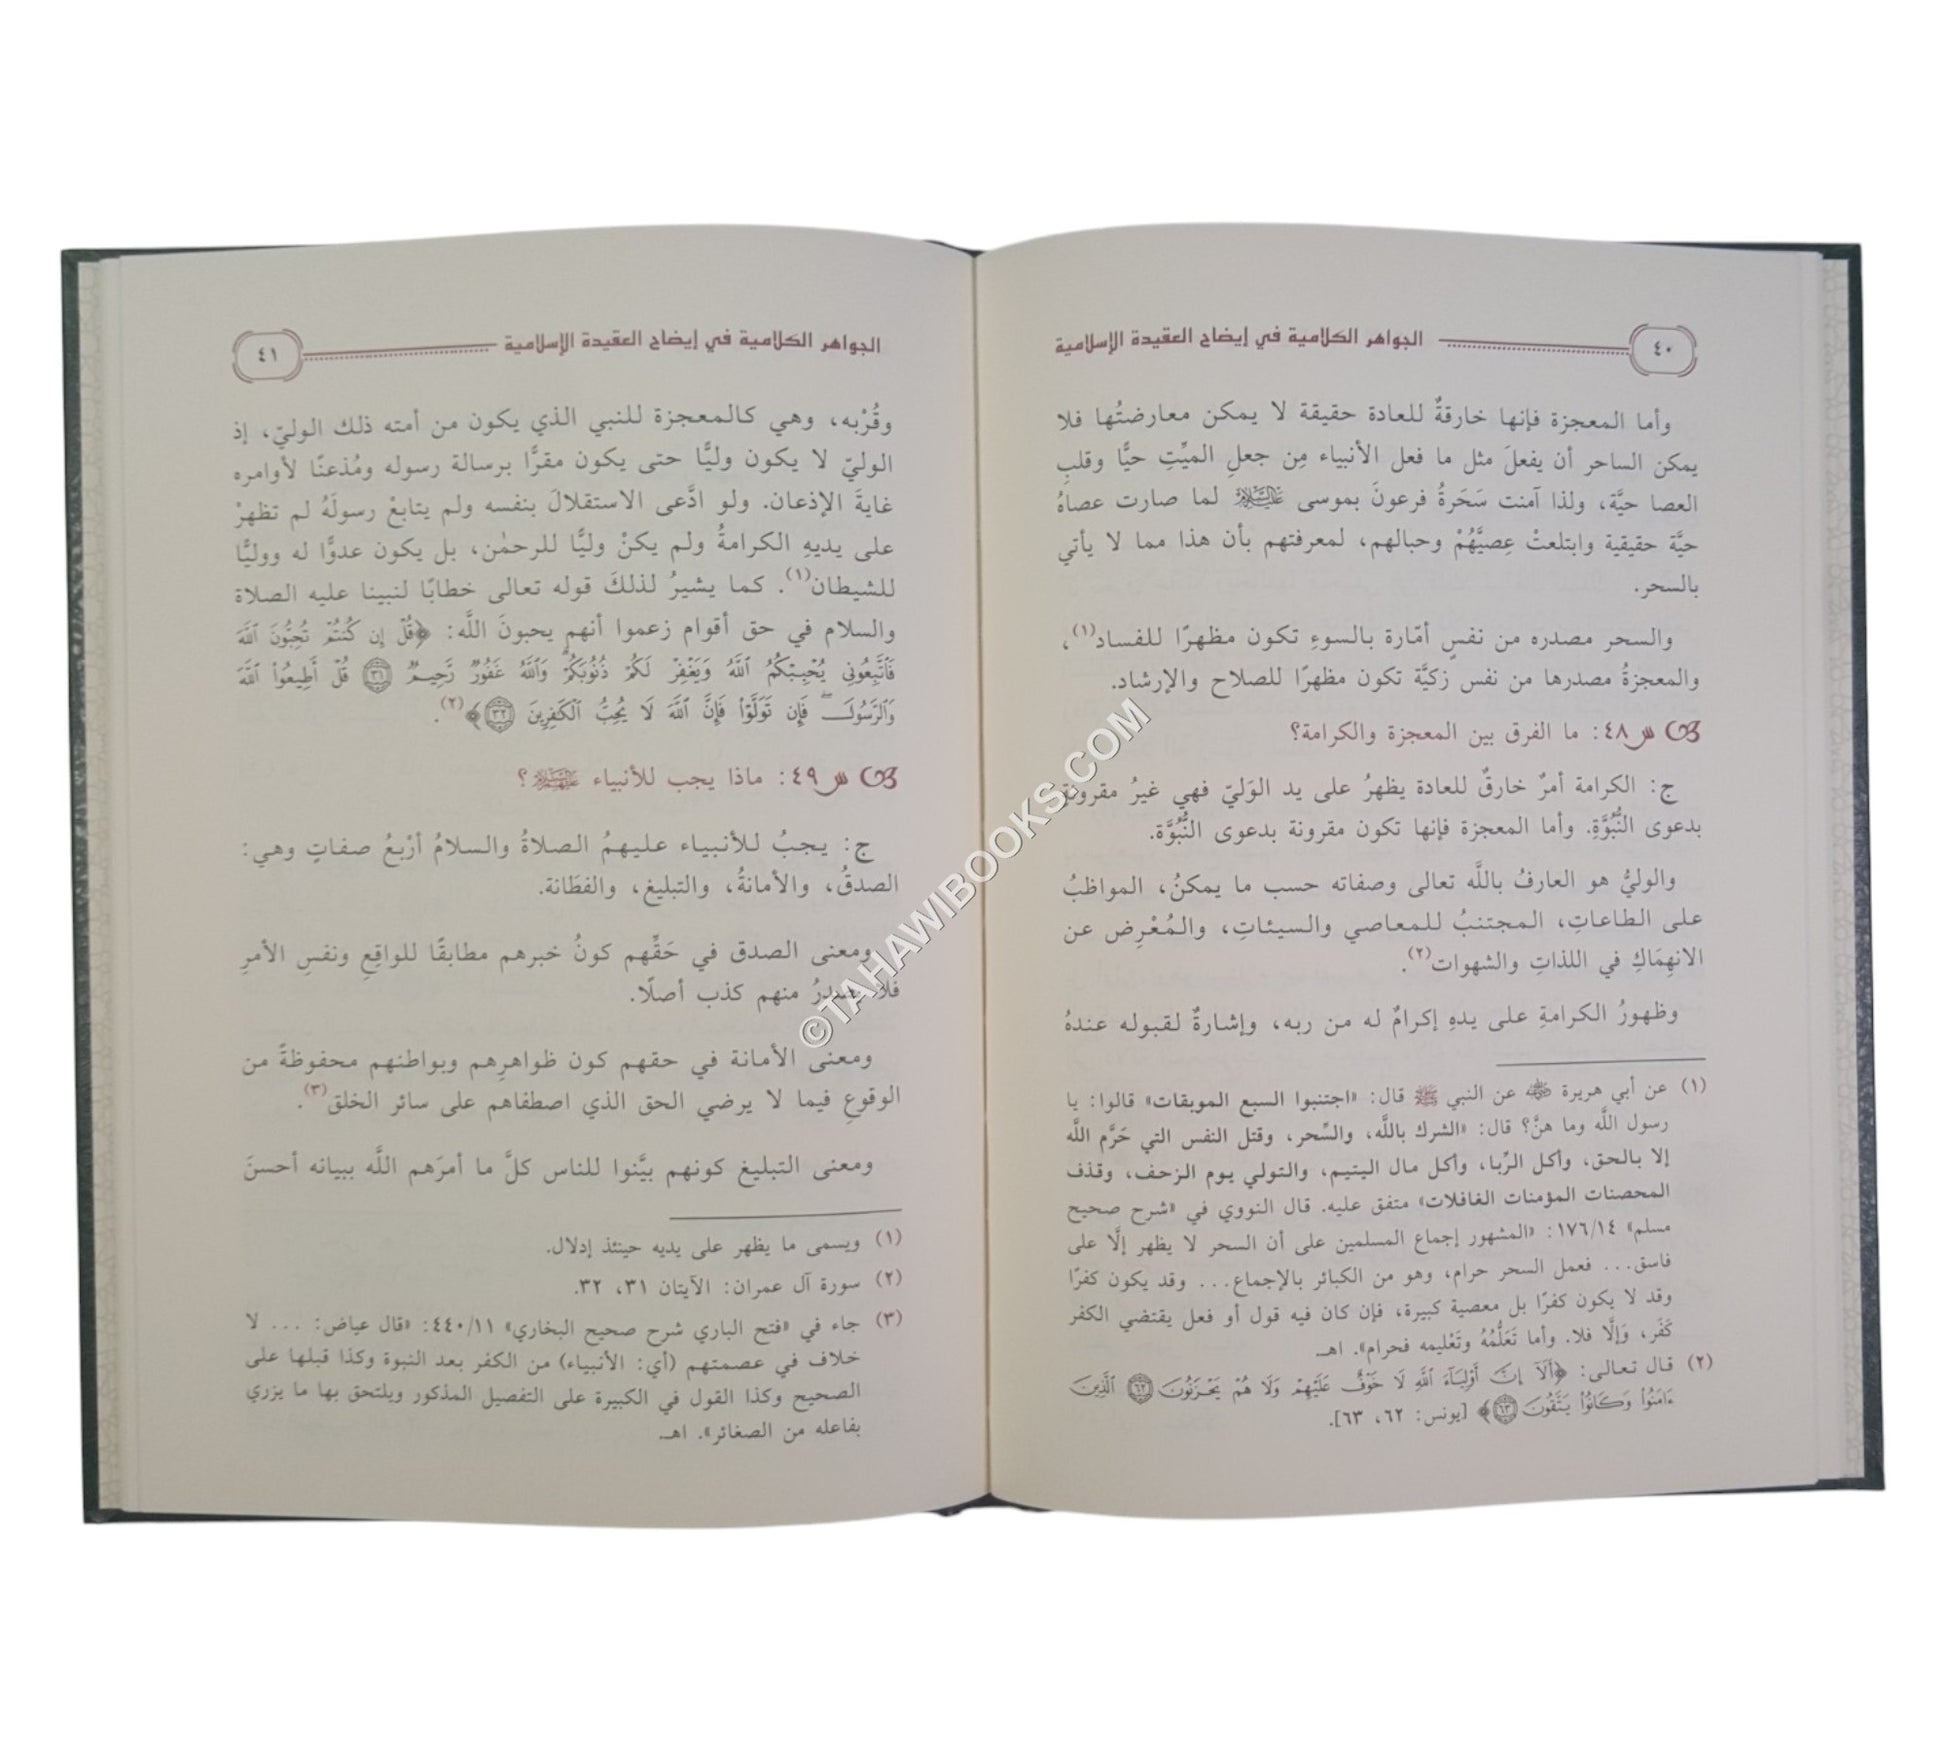 ٤٠
الجواهر الكلامية في إيضاح العقيدة الإسلامية
وأما المعجزة فإنها خارقةٌ للعادة حقيقة لا يمكن معارضتُها فلا
يمكن الساحر أن يفعلَ مثل ما فعل الأنبياء مِن جعلِ الميِّتِ حيًّا وقلبِ
العصا حيَّة، ولذا آمنت سَحَرَةُ فرعونَ بموسى عليه السلام لما صارت عصاهُ
حيَّة حقيقية وابتلعتْ عِصيَّهُمْ وحبالهم، لمعرفتهم بأن هذا مما لا يأتي
بالسحر.
والسحر مصدره من نفسٍ أمّارة بالسوءِ تكون مظهرًا للفساد(١)،
والمعجزةُ مصدرها من نفس زكيَّة تكون مظهرًا للصلاح والإرشاد.
س٤٨: ما الفرق بين المعجزة والكرامة؟
ج: الكرامة أمرٌ خارقٌ للعادة يظهرُ على يد الوَليّ فهي غيرُ مقرونة
بدعوى النُّبُوَّةِ. وأما المعجزة فإنها تكون مقرونة بدعوى النُّبُوَّة.
والوليُّ هو العارفُ باللَّه تعالى وصفاته حسب ما يمكنُ، المواظبُ
على الطاعاتِ، المجتنبُ للمعاصي والسيئاتِ، والمُعْرِض عن
الانهِمَاكِ في اللذاتِ والشهوات(٢).
وظهورُ الكرامةِ على يدهِ إكرامٌ له من ربه، وإشارةٌ لقبوله عندهُ
(١) عن أبي هريرة رضي الله عنه عن النبي ﷺ قال: «اجتنبوا السبع الموبقات» قالوا: يا
رسول اللَّه وما هنَّ؟ قال: «الشرك باللَّه، والسِّحر، وقتل النفس التي حَرَّم اللَّه
إلا بالحق، وأكل الرِّبا، وأكل مال اليتيم، والتولي يوم الزحف، وقذف
المحصنات المؤمنات الغافلات» متفق عليه. قال النووي في «شرح صحيح
مسلم» ١٧٦/١٤: «المشهور إجماع المسلمين على أن السحر لا يظهر إلَّا على
فاسق... فعمل السحر حرام، وهو من الكبائر بالإجماع... وقد يكون كفرًا
وقد لا يكون كفرًا بل معصية كبيرة، فإن كان فيه قول أو فعل يقتضي الكفر
كَفَر، وَإلَّا فلا. وأما تَعَلُّمُهُ وتَعْليمه فحرام». اهـ.
(٢) قال تعالى: ﴿أَلَآ إِنَّ أَوْلِيَآءَ ٱللَّهِ لَا خَوْفٌ عَلَيْهِمْ وَلَا هُمْ يَحْزَنُونَ ٦٢ ٱلَّذِينَ
ءَامَنُوا۟ وَكَانُوا۟ يَتَّقُونَ ٦٣﴾ [يونس: ٦٢، ٦٣].
الجواهر الكلامية في إيضاح العقيدة الإسلامية
٤١
وقُرْبه، وهي كالمعجزة للنبي الذي يكون من أمته ذلك الوليّ، إذ
الوليّ لا يكون وليًّا حتى يكون مقرًّا برسالة رسوله ومُذعنًا لأوامره
غايةَ الإذعان. ولو ادَّعى الاستقلالَ بنفسه ولم يتابعْ رسولَهُ لم تظهرْ
على يديهِ الكرامةُ ولم يكنْ وليًّا للرحمٰن، بل يكون عدوًّا له ووليًّا
للشيطان(١). كما يشيرُ لذلكَ قوله تعالى خطابًا لنبينا عليه الصلاة
والسلام في حق أقوام زعموا أنهم يحبونَ اللَّه: ﴿قُلْ إِن كُنتُمْ تُحِبُّونَ ٱللَّهَ
فَٱتَّبِعُونِى يُحْبِبْكُمُ ٱللَّهُ وَيَغْفِرْ لَكُمْ ذُنُوبَكُمْ ۗ وَٱللَّهُ غَفُورٌ رَّحِيمٌ ٣١ قُلْ أَطِيعُوا۟ ٱللَّهَ
وَٱلرَّسُولَ ۖ فَإِن تَوَلَّوْا۟ فَإِنَّ ٱللَّهَ لَا يُحِبُّ ٱلْكَٰفِرِينَ ٣٢﴾(٢).
س٤٩: ماذا يجب للأنبياء عليهم السلام؟
ج: يجبُ للأنبياء عليهمُ الصلاةُ والسلامُ أرْبعُ صفاتٍ وهي:
الصدقُ، والأمانةُ، والتبليغ، والفطَانة.
ومعنى الصدق في حَقِّهم كونُ خبرهم مطابقًا للواقِعِ ونفسِ الأمرِ
فلا يصدرُ منهم كذب أصلًا.
ومعنى الأمانة في حقهم كون ظواهرِهم وبواطنهم محفوظةً من
الوقوعِ فيما لا يرضي الحق الذي اصطفاهم على سائر الخلق(٣).
ومعنى التبليغ كونهم بيَّنوا للناس كلَّ ما أمرَهم اللَّه ببيانه أحسنَ
(١) ويسمى ما يظهر على يديه حينئذ إدلال.
(٢) سورة آل عمران: الآيتان ٣١، ٣٢.
(٣) جاء في «فتح الباري شرح صحيح البخاري» ٤٤٠/١١: «قال عياض: ... لا
خلاف في عصمتهم (أي: الأنبياء) من الكفر بعد النبوة وكذا قبلها على
الصحيح وكذا القول في الكبيرة على التفصيل المذكور ويلتحق بها ما يزري
بفاعله من الصغائر». اهـ.
©TAHAWIBOOKS.COM